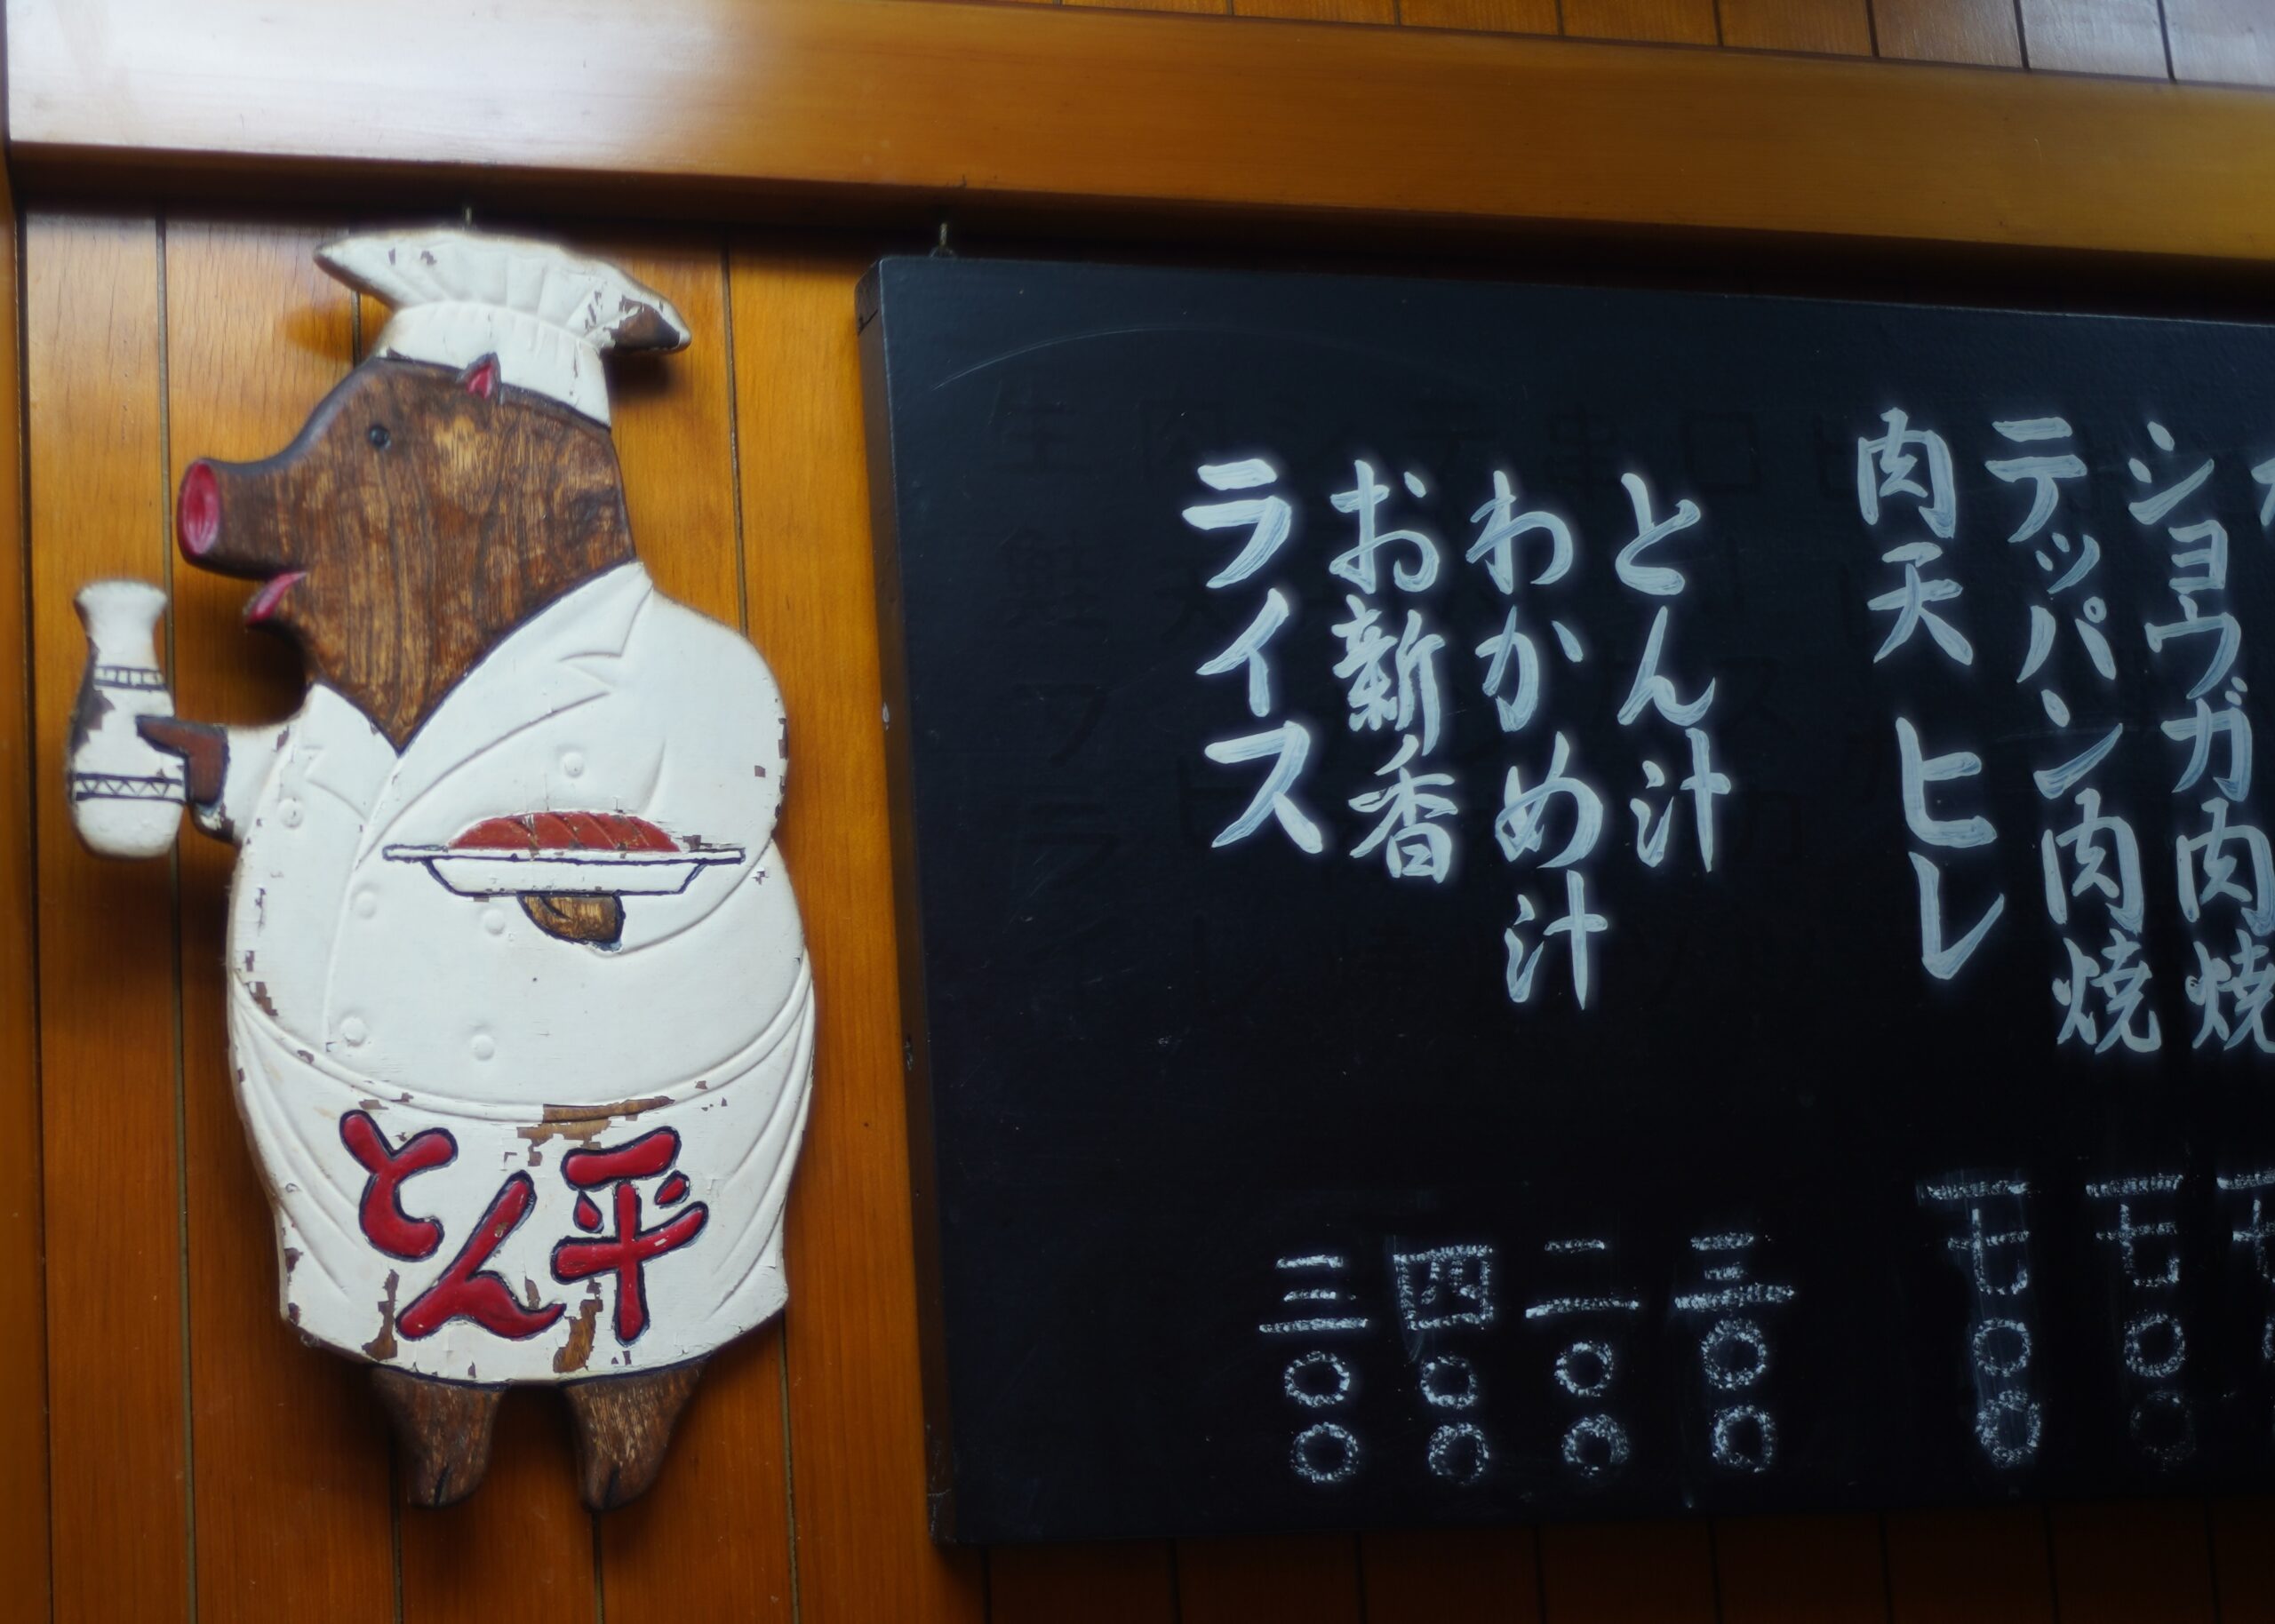 とん平
ショウガ肉焼
テッパン肉焼 一七〇〇
肉天 ヒレ 一七〇〇
とん汁 三〇〇
わかめ汁 二〇〇
お新香 四〇〇
ライス 三〇〇